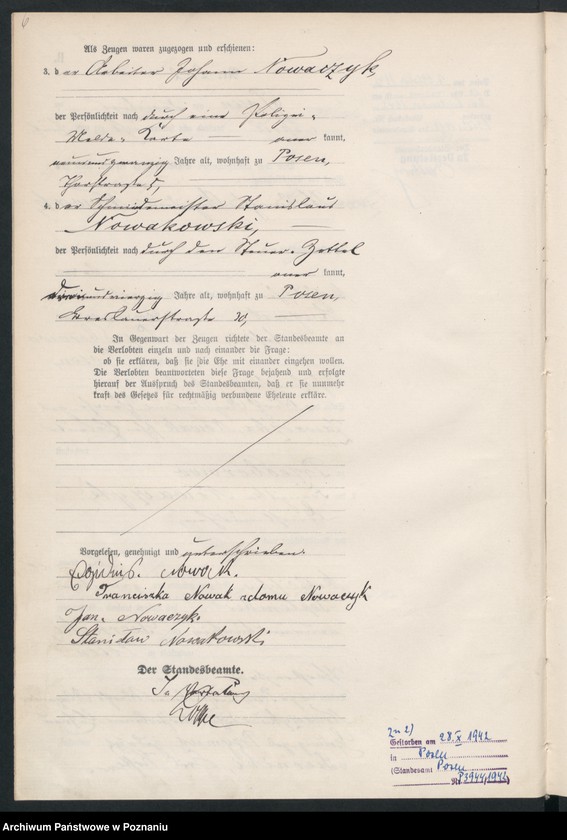 6
Als Zeugen waren zugezogen und erschienen:
3. der Arbeiter Johann Nowaczyk,
der Persönlichkeit nach durch eine Polizei-
Melde-Karte kannt,
neunundzwanzig Jahre alt, wohnhaft zu Posen,
Thorstraße 5,
4. der Schmiedemeister Stanislaus
Nowakowski,
der Persönlichkeit nach durch den Steuer-Zettel
kannt,
dreiundvierzig Jahre alt, wohnhaft zu Posen,
Breslauerstraße 30,
In Gegenwart der Zeugen richtete der Standesbeamte an
die Verlobten einzeln und nach einander die Frage:
ob sie erklären, daß sie die Ehe mit einander eingehen wollen.
Die Verlobten beantworteten diese Frage bejahend und erfolgte
hierauf der Ausspruch des Standesbeamten, daß er sie nunmehr
kraft des Gesetzes für rechtmäßig verbundene Eheleute erkläre.
Vorgelesen, genehmigt und unterschrieben.
Nowak.
Franciszka Nowak zdomu Nowaczyk
Jan Nowaczyk.
Stanisław Nowakowski
Der Standesbeamte.
In Vertretung
Zu 2)
Gestorben am 28.X 1942
in Posen
(Standesamt Posen
Nr. P3944/1942)
Archiwum Państwowe w Poznaniu